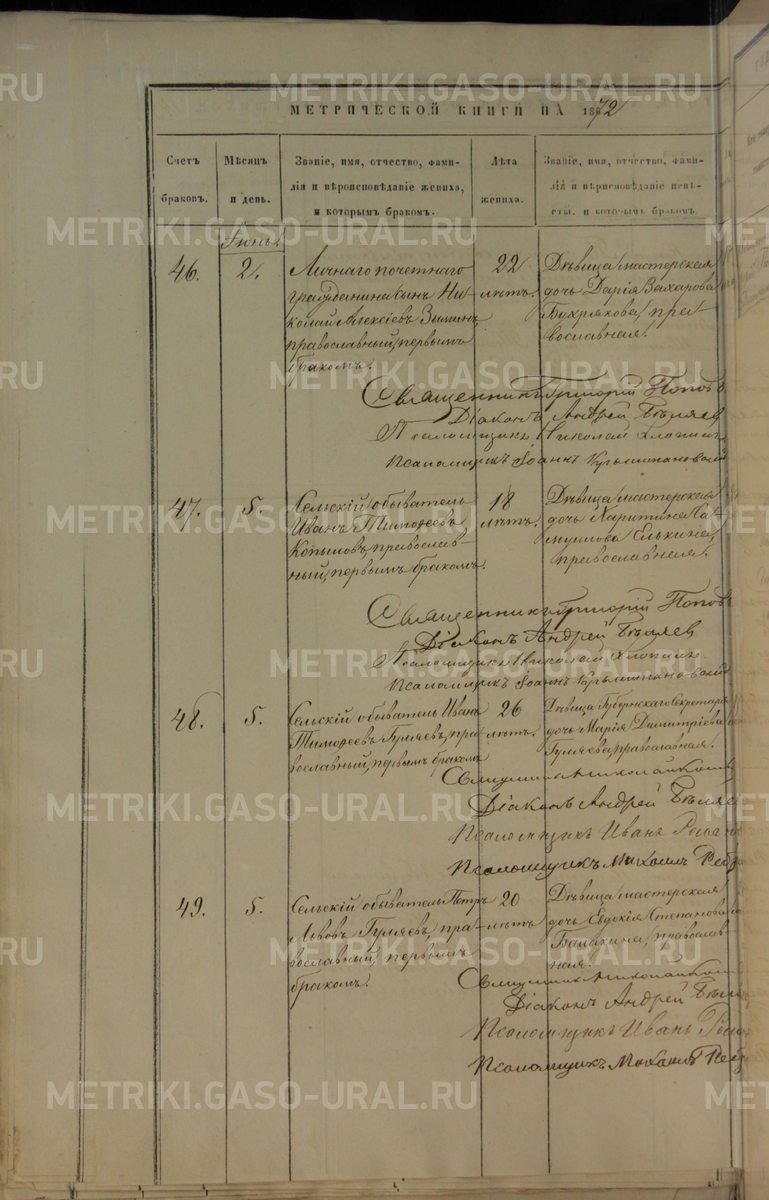 МЕТРИЧЕСКОЙ КНИГИ НА 1872
Счетъ
браковъ.
Мѣсяцъ
и день.
Званіе, имя, отчество, фами-
лія и вѣроисповѣданіе жениха,
и которымъ бракомъ.
Лѣта
жениха.
Званіе, имя, отчество, фами-
лія и вѣрисповѣданіе невѣ-
сты, и которымъ бракомъ.
Іюнь.
46. 2.
Личнаго почетнаго
гражданина сынъ Ни-
колай Алексіевъ Зиминъ,
православный, первымъ
бракомъ.
22
лѣтъ.
Дѣвица, мастерская
дочь Дарія Захарова
Бухрякова, пра-
вославная.
Священникъ Григорій Поповъ
Діаконъ Андрей Бѣляев
Псаломщикъ Николай Хлопин
Псаломщикъ Іоаннъ
47. 5.
Сельскій обыватель
Иванъ Тимоѳеевъ
Копыловъ, православ-
ный, первымъ бракомъ.
18
лѣтъ.
Дѣвица, мастерская
дочь Харитина Са-
муилова Елькина,
православная.
Священникъ Григорій Поповъ
Діаконъ Андрей Бѣляев
Псаломщикъ Николай Хлопин
Псаломщикъ Іоаннъ
48. 5.
Сельскій обыватель Иванъ
Тимоѳеевъ Гуляевъ, пра-
вославный, первымъ бракомъ
26
лѣтъ.
Дѣвица Губернскаго Секретаря
дочь Марія Димитріева
Гуляева, православная.
Священникъ Николай
Діаконъ Андрей Бѣляе
Псаломщикъ Иванъ
Псаломщикъ Михаилъ
49. 5.
Сельскій обыватель Петръ
Львовъ Гуляевъ, пра-
вославный, первымъ
бракомъ.
20
лѣтъ
Дѣвица, мастерская
дочь Евдокія Степанова
православ-
ная.
Священникъ Николай
Діаконъ Андрей Бѣля
Псаломщикъ Иванъ
Псаломщикъ Михаилъ
METRIKI.GASO-URAL.RU